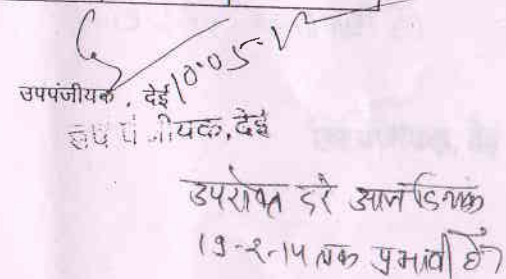 उपपंजीयक, देई
उप पंजीयक, देई
उपरोक्त दरे आज दिनांक
19-2-14 तक प्रभावी है